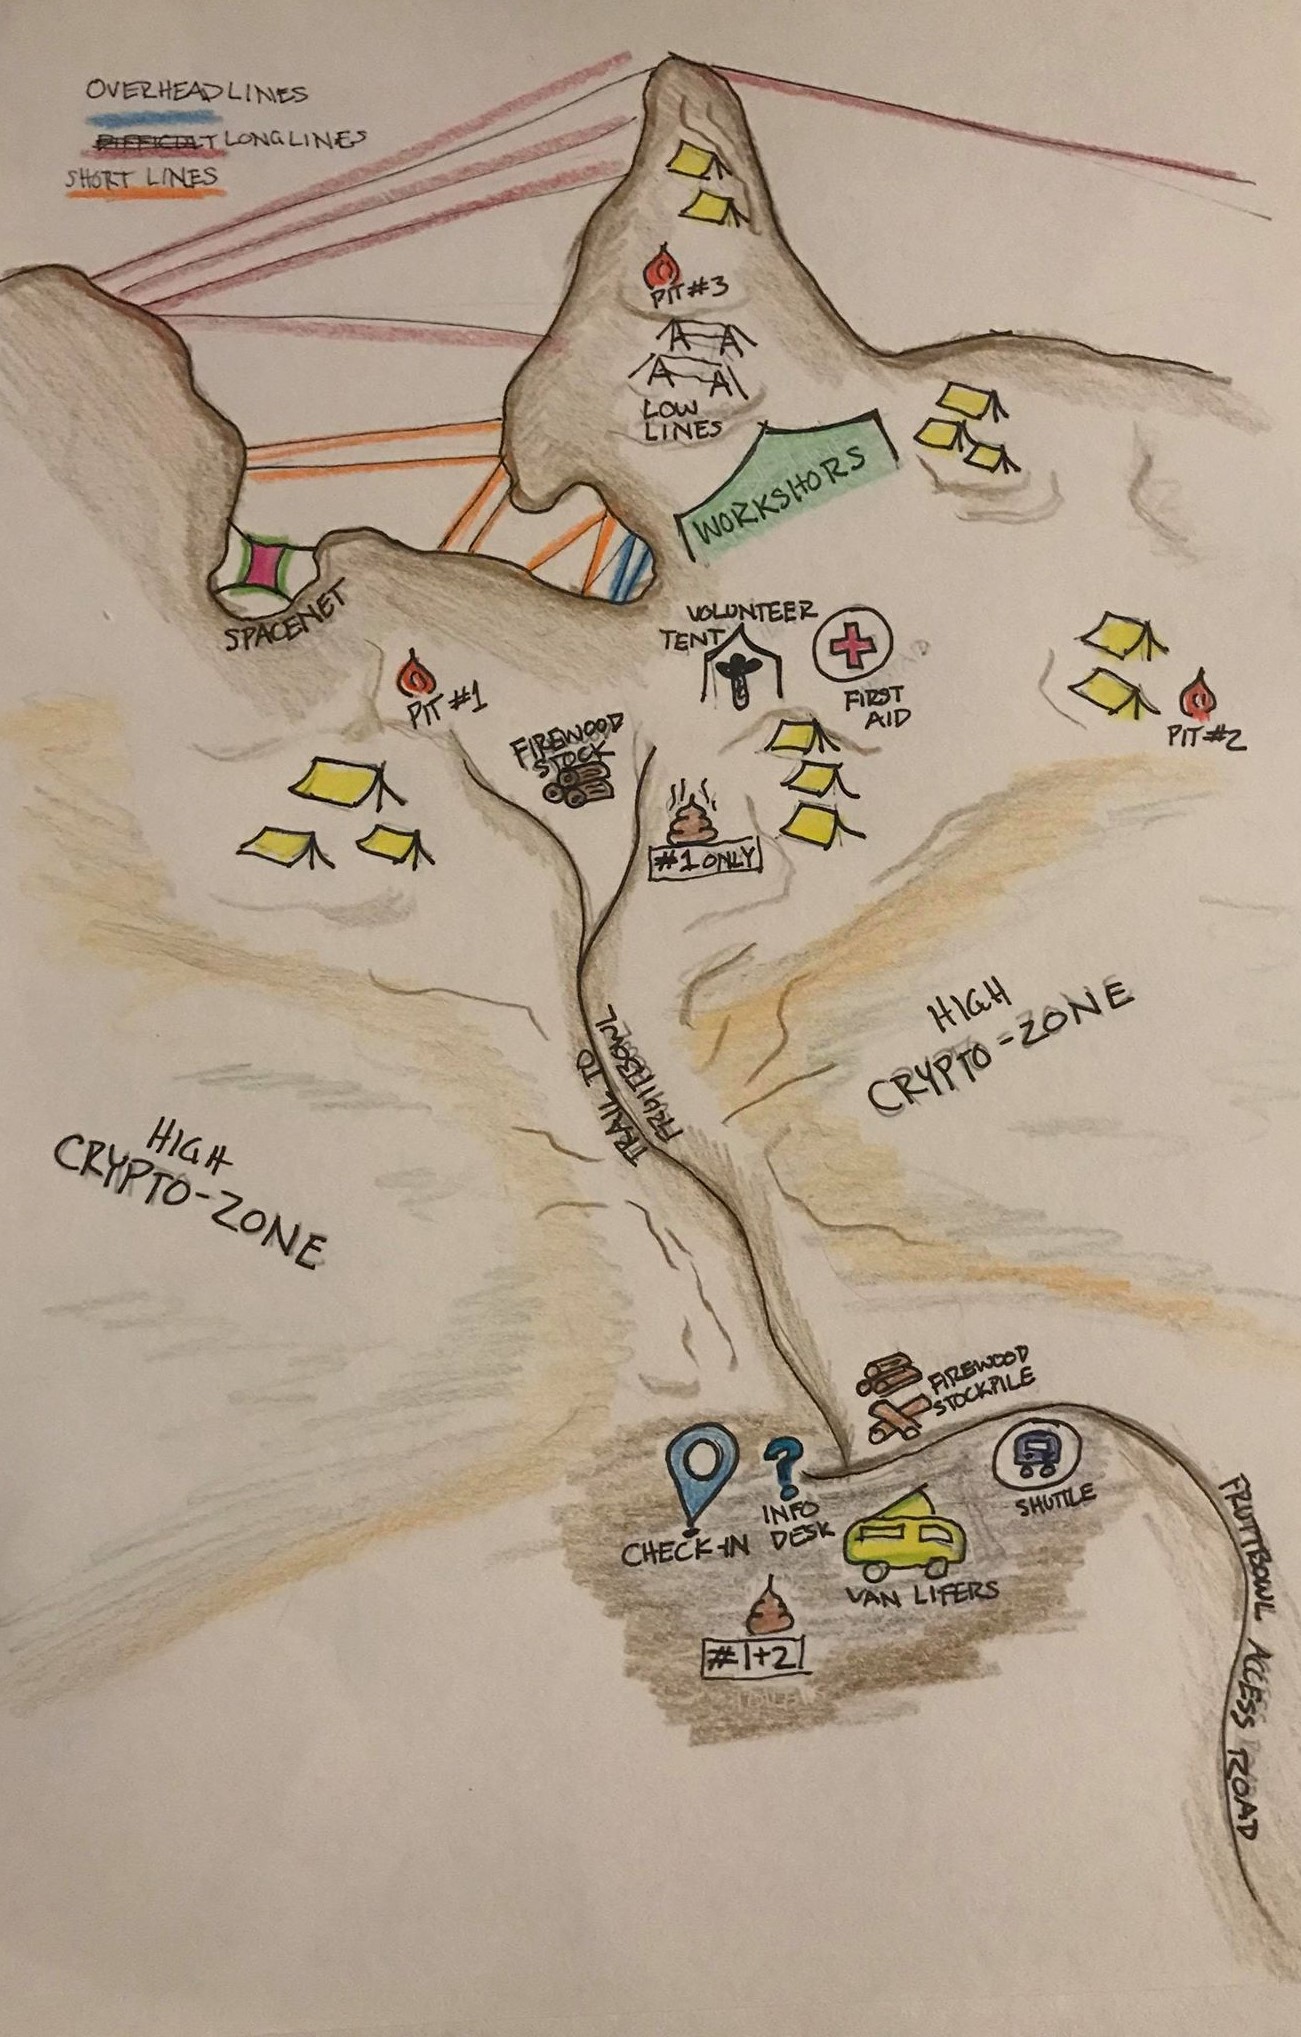 OVERHEAD LINES
LONGLINES
SHORT LINES
PIT #3
LOW
LINES
WORKSHORS
SPACENET
VOLUNTEER
TENT
FIRST
AID
PIT #1
FIREWOOD
STOCK
PIT #2
#1 ONLY
HIGH
CRYPTO-ZONE
TRAIL TO
FRUITBOWL
HIGH
CRYPTO-ZONE
FIREWOOD
STOCKPILE
SHUTTLE
CHECK-IN
INFO
DESK
VAN LIFERS
#1+2
FRUITBOWL ACCESS ROAD